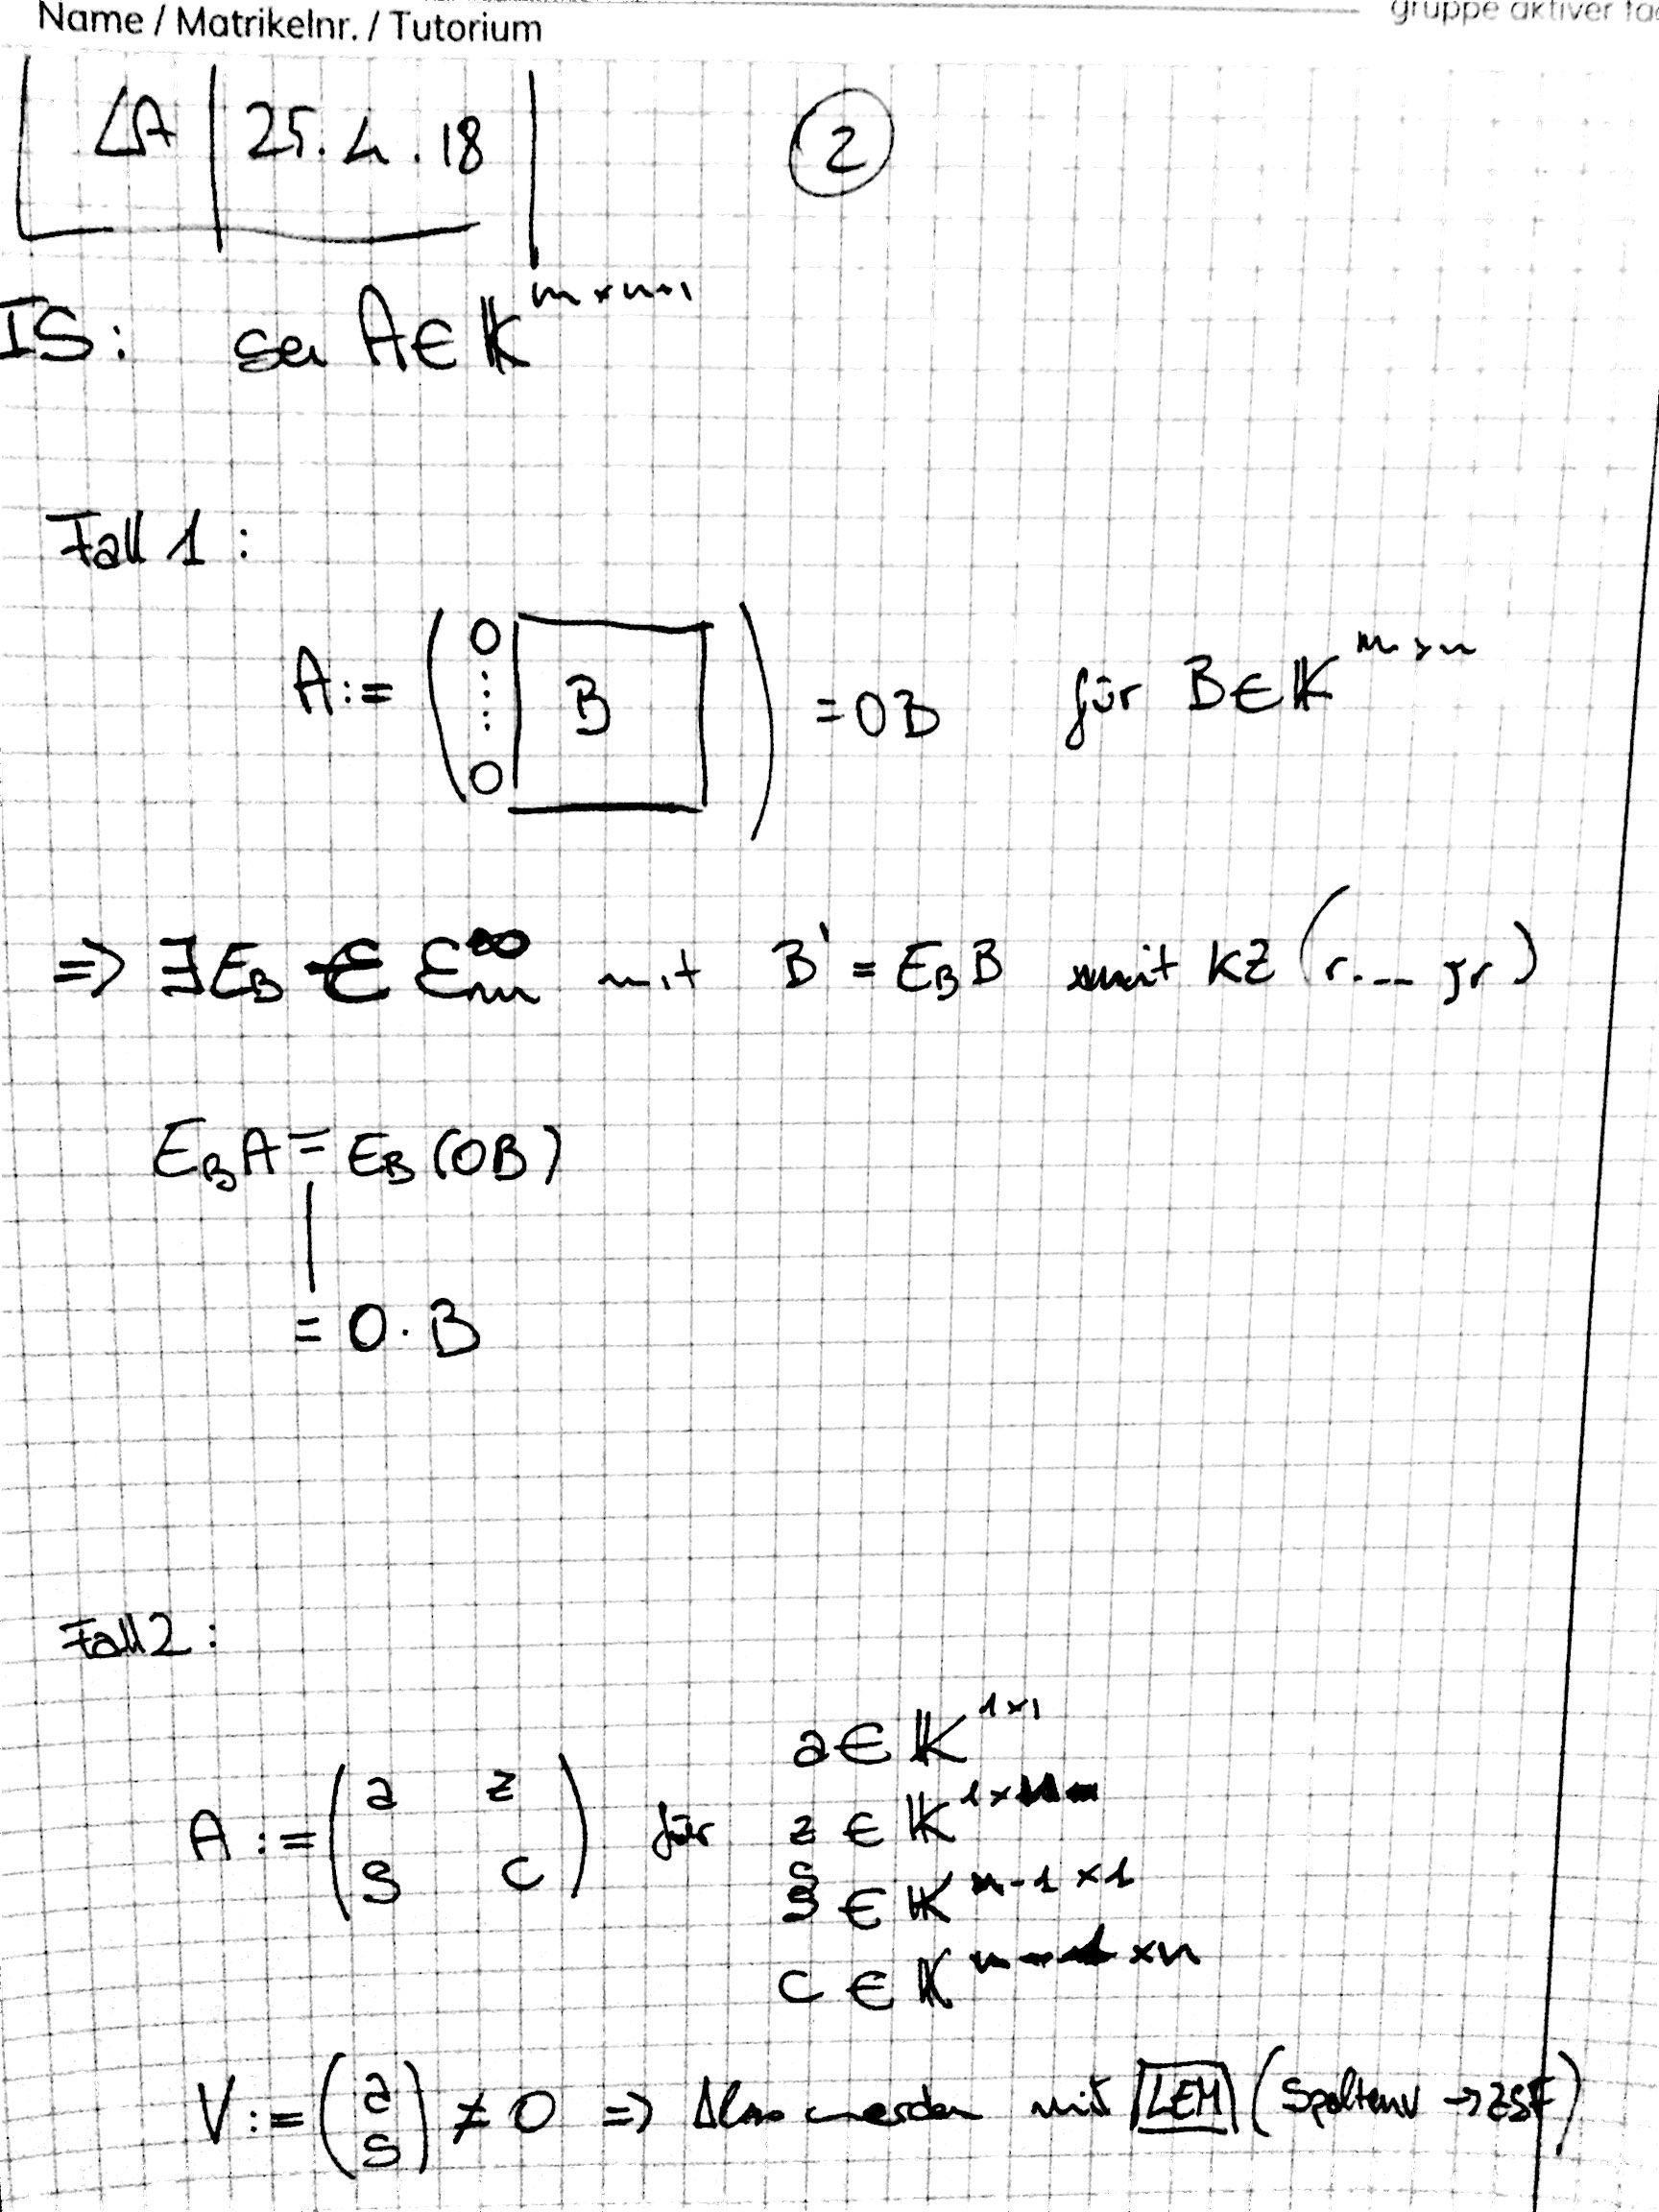 Name / Matrikelnr. / Tutorium
gruppe aktiver
LA | 25.4.18
②
IS: sei A ∈ 𝕂^{m×n+1}
Fall 1:
A := (0 ⋮ 0 B) = 0B für B ∈ 𝕂^{m×n}
⇒ ∃ E_B ∈ ε_m^∞ mit B' = E_B B mit KZ (r... jr)
E_B A = E_B (0B)
= 0 · B
Fall 2:
A := (a z s c) für
a ∈ 𝕂^{1×1}
z ∈ 𝕂^{1×}
s ∈ 𝕂^{m-1×1}
c ∈ 𝕂^{m-1×n}
V := (a s) ≠ 0 ⇒ werden mit LEM (Spaltenv → ZSF)